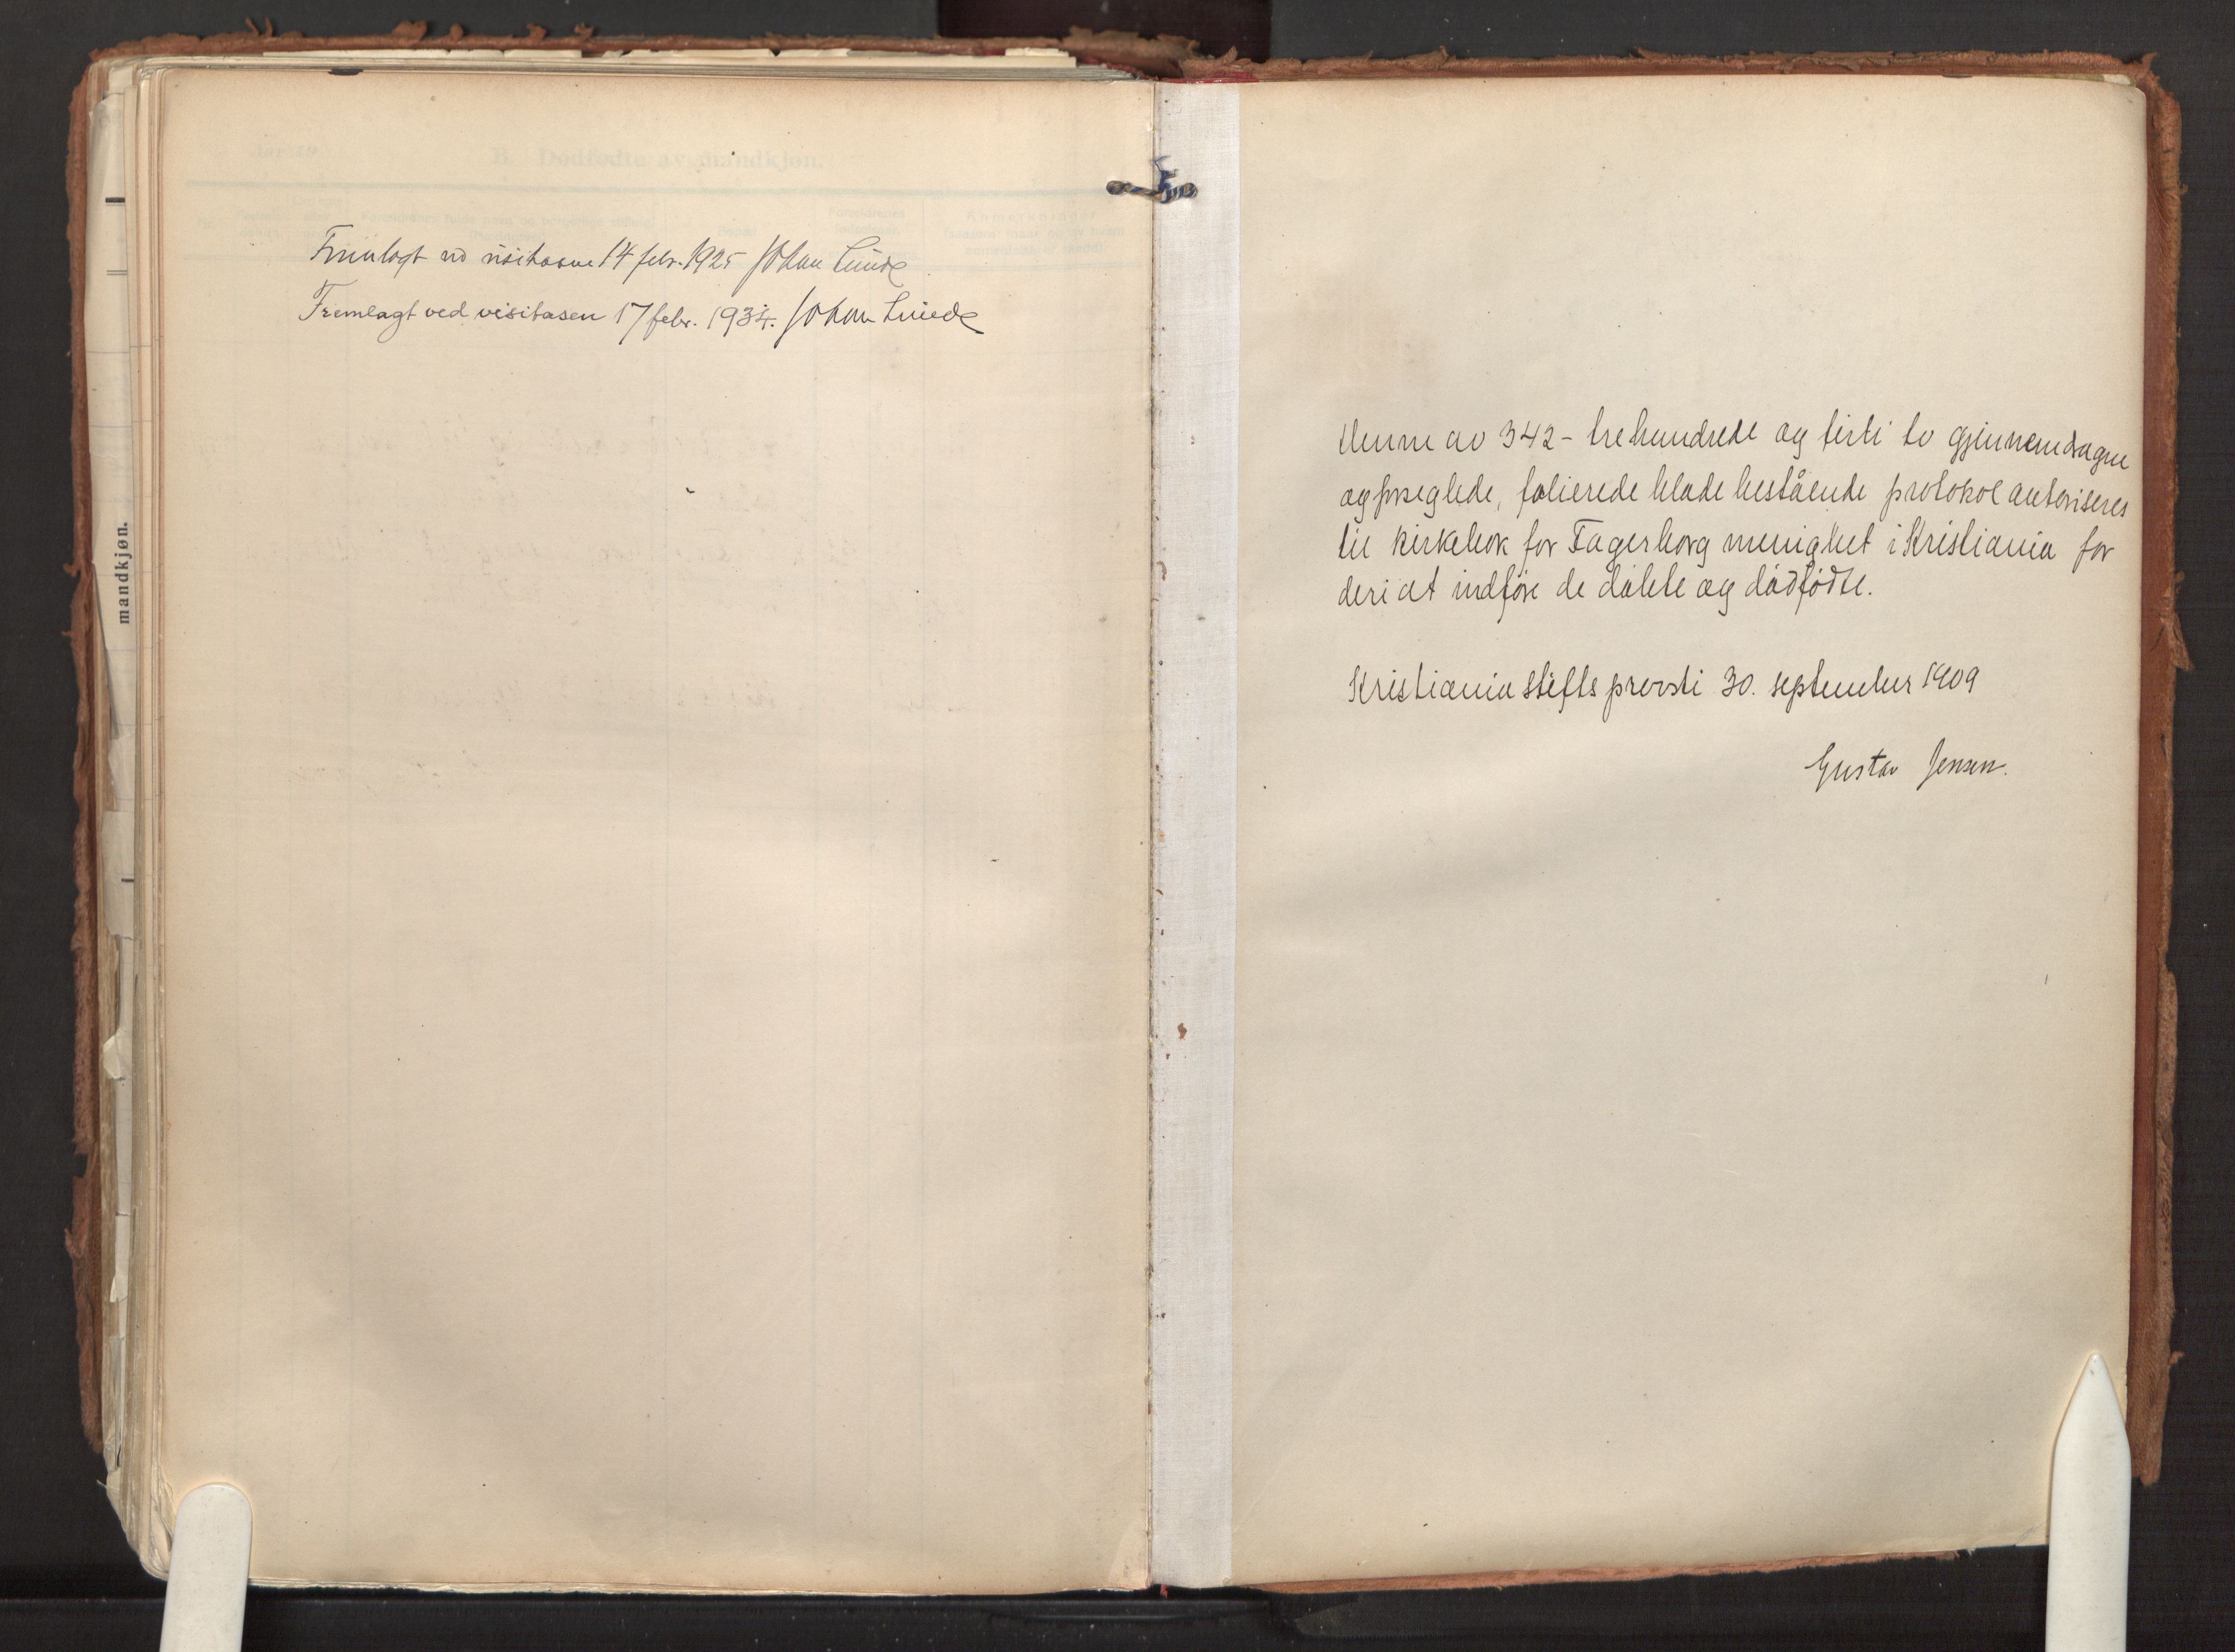 Fremlagt ved visitasen 14 febr. 1925 Johan Lunde
Fremlagt ved visitasen 17 febr. 1934. Johan Lunde
mandkjøn.
B. Dødfødte av mandkjøn.
Denne av 342 - tre hundrede og firti to gjennemdragne
og forseglede, folierede blade bestående protokol autoriseres
til kirkebok for Fagerborg menighet i Kristiania for
deri at indføre de døde og dødfødte.
Kristiania stiftsprovsti 30. september 1909
Gustav Jensen.